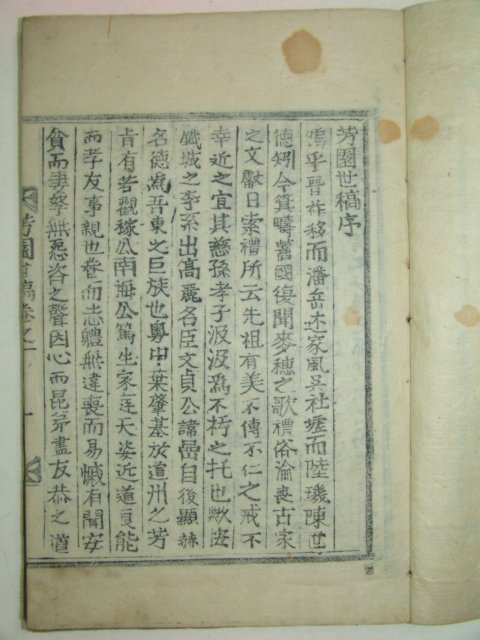 芳園世稿序
嗚乎晋祚移而潘岳述家風吳社墟而陸璣陳世
德矧今箕疇舊國復聞麥穗之歌禮俗淪喪古家
之文獻日索禮所云先祖有美不傳不仁之戒不
幸近之宜其慈孫孝子汲汲爲不朽之托也
城之李系出高麗名臣文貞公諱嵒自後顯赫
名德爲吾東之巨族也粤中葉肇基於道州之芳
有若觀稼公南海公篤生家庭天姿近道良能
而孝友事親也眷而志體無違喪而易慽有聞安
貧而妻孥無怨咨之聲因心而昆弟盡友恭之道
芳園世稿卷之一
一